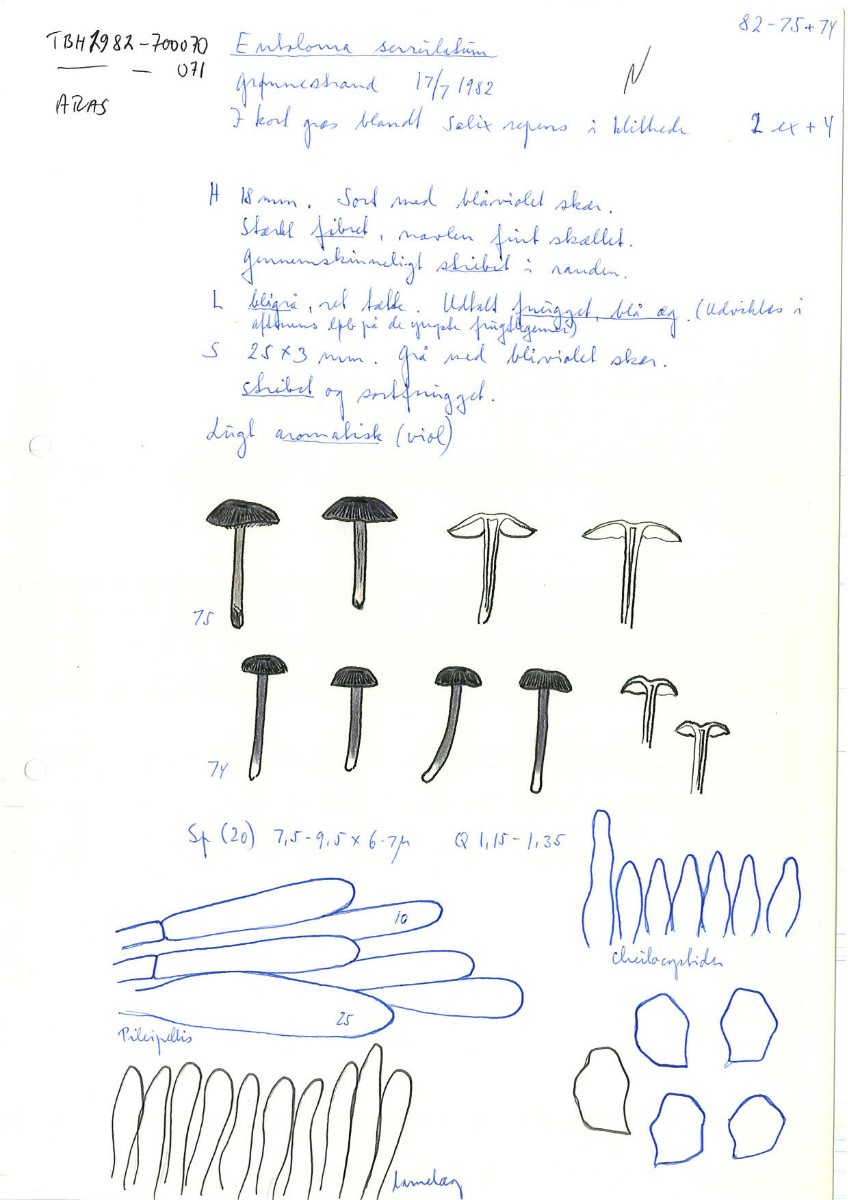 82-75+74
TBH1982-700070
071
ARAS
Entoloma serrulatum
Grønnestrand 17/7 1982
I kort græs blandt Salix repens i klithede 2 ex + 4
N
H 18 mm. Sort med blåviolet skær.
Stærkt fibret, navlen fint skællet.
Gennemskinneligt stribet i randen.
L blågrå, ret tætte. Udtalt fnugget, blå æg. (Udvikles i
aftenens løb på de frugtlegemer)
S 25 x 3 mm. Grå med blåviolet skær.
stribet og sortfnugget.
Lugt aromatisk (viol)
75
74
Sp (20) 7,5-9,5 x 6-7µ Q 1,15-1,35
10
25
Cheilocystider
Pileipellis
Lamelæg